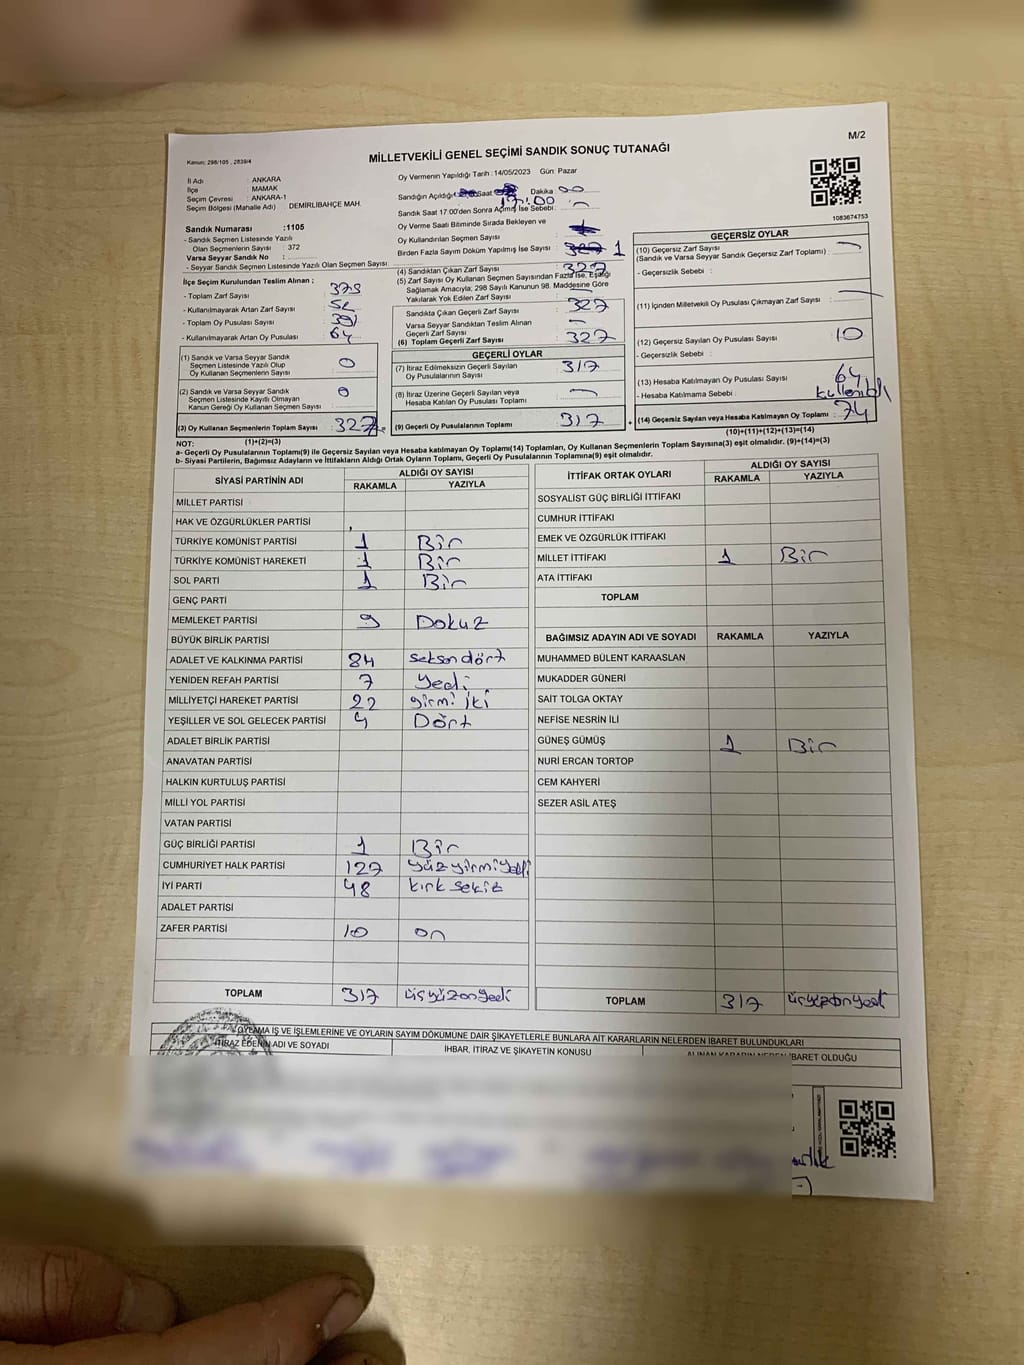 M/2
Kanun: 298/105 , 2839/4
MİLLETVEKİLİ GENEL SEÇİMİ SANDIK SONUÇ TUTANAĞI
İl Adı : ANKARA
İlçe : MAMAK
Seçim Çevresi : ANKARA-1
Seçim Bölgesi (Mahalle Adı) DEMİRLİBAHÇE MAH.
Sandık Numarası :1105
- Sandık Seçmen Listesinde Yazılı
Olan Seçmenlerin Sayısı : 372
Varsa Seyyar Sandık No :
- Seyyar Sandık Seçmen Listesinde Yazılı Olan Seçmen Sayısı:
Oy Vermenin Yapıldığı Tarih :14/05/2023 Gün: Pazar
Sandığın Açıldığı Saat Dakika 00
17:00
Sandık Saat 17.00'den Sonra Açılmış İse Sebebi:
Oy Verme Saati Bitiminde Sırada Bekleyen ve
Oy Kullandırılan Seçmen Sayısı
Birden Fazla Sayım Döküm Yapılmış İse Sayısı 1
1083674753
İlçe Seçim Kurulundan Teslim Alınan :
- Toplam Zarf Sayısı :
- Kullanılmayarak Artan Zarf Sayısı :
- Toplam Oy Pusulası Sayısı : 391
- Kullanılmayarak Artan Oy Pusulası : 64
(1) Sandık ve Varsa Seyyar Sandık
Seçmen Listesinde Yazılı Olup
Oy Kullanan Seçmenlerin Sayısı : 0
(2) Sandık ve Varsa Seyyar Sandık
Seçmen Listesinde Kayıtlı Olmayan
Kanun Gereği Oy Kullanan Seçmen Sayısı : 0
(3) Oy Kullanan Seçmenlerin Toplam Sayısı : 327
(1)+(2)=(3)
(4) Sandıktan Çıkan Zarf Sayısı : 327
(5) Zarf Sayısı Oy Kullanan Seçmen Sayısından Fazla İse, Eşitliği
Sağlamak Amacıyla; 298 Sayılı Kanunun 98. Maddesine Göre
Yakılarak Yok Edilen Zarf Sayısı :
Sandıkta Çıkan Geçerli Zarf Sayısı : 327
Varsa Seyyar Sandıktan Teslim Alınan
Geçerli Zarf Sayısı :
(6) Toplam Geçerli Zarf Sayısı : 327
GEÇERLİ OYLAR
(7) İtiraz Edilmeksizin Geçerli Sayılan
Oy Pusulalarının Sayısı : 317
(8) İtiraz Üzerine Geçerli Sayılan veya
Hesaba Katılan Oy Pusulası Toplamı :
(9) Geçerli Oy Pusulalarının Toplamı : 317
GEÇERSİZ OYLAR
(10) Geçersiz Zarf Sayısı
(Sandık ve Varsa Seyyar Sandık Geçersiz Zarf Toplamı) :
- Geçersizlik Sebebi :
(11) İçinden Milletvekili Oy Pusulası Çıkmayan Zarf Sayısı :
(12) Geçersiz Sayılan Oy Pusulası Sayısı : 10
- Geçersizlik Sebebi :
(13) Hesaba Katılmayan Oy Pusulası Sayısı : 64
- Hesaba Katılmama Sebebi :
(14) Geçersiz Sayılan veya Hesaba Katılmayan Oy Toplamı : 74
(10)+(11)+(12)+(13)=(14)
NOT:
a- Geçerli Oy Pusulalarının Toplamı(9) ile Geçersiz Sayılan veya Hesaba katılmayan Oy Toplamı(14) Toplamları, Oy Kullanan Seçmenlerin Toplam Sayısına(3) eşit olmalıdır. (9)+(14)=(3)
b- Siyasi Partilerin, Bağımsız Adayların ve İttifakların Aldığı Ortak Oyların Toplamı, Geçerli Oy Pusulalarının Toplamına(9) eşit olmalıdır.
SİYASİ PARTİNİN ADI ALDIĞI OY SAYISI
RAKAMLA YAZIYLA
MİLLET PARTİSİ
HAK VE ÖZGÜRLÜKLER PARTİSİ
TÜRKİYE KOMÜNİST PARTİSİ 1 Bir
TÜRKİYE KOMÜNİST HAREKETİ 1 Bir
SOL PARTİ 1 Bir
GENÇ PARTİ
MEMLEKET PARTİSİ 9 Dokuz
BÜYÜK BİRLİK PARTİSİ
ADALET VE KALKINMA PARTİSİ 84 seksen dört
YENİDEN REFAH PARTİSİ 7 yedi
MİLLİYETÇİ HAREKET PARTİSİ 22 yirmi iki
YEŞİLLER VE SOL GELECEK PARTİSİ 4 Dört
ADALET BİRLİK PARTİSİ
ANAVATAN PARTİSİ
HALKIN KURTULUŞ PARTİSİ
MİLLİ YOL PARTİSİ
VATAN PARTİSİ
GÜÇ BİRLİĞİ PARTİSİ 1 Bir
CUMHURİYET HALK PARTİSİ 127 yüz yirmi yedi
İYİ PARTİ 48 kırk sekiz
ADALET PARTİSİ
ZAFER PARTİSİ 10 on
TOPLAM 317 üçyüzonyedi
İTTİFAK ORTAK OYLARI ALDIĞI OY SAYISI
RAKAMLA YAZIYLA
SOSYALİST GÜÇ BİRLİĞİ İTTİFAKI
CUMHUR İTTİFAKI
EMEK VE ÖZGÜRLÜK İTTİFAKI
MİLLET İTTİFAKI 1 Bir
ATA İTTİFAKI
TOPLAM
BAĞIMSIZ ADAYIN ADI VE SOYADI RAKAMLA YAZIYLA
MUHAMMED BÜLENT KARAASLAN
MUKADDER GÜNERİ
SAİT TOLGA OKTAY
NEFİSE NESRİN İLİ
GÜNEŞ GÜMÜŞ 1 Bir
NURİ ERCAN TORTOP
CEM KAHYERİ
SEZER ASİL ATEŞ
TOPLAM 317 üçyüzonyedi
OYLAMA İŞ VE İŞLEMLERİNE VE OYLARIN SAYIM DÖKÜMÜNE DAİR ŞİKAYETLERLE BUNLARA AİT KARARLARIN NELERDEN İBARET BULUNDUKLARI
İTİRAZ EDENİN ADI VE SOYADI İHBAR, İTİRAZ VE ŞİKAYETİN KONUSU ALINAN KARARIN NEDEN İBARET OLDUĞU